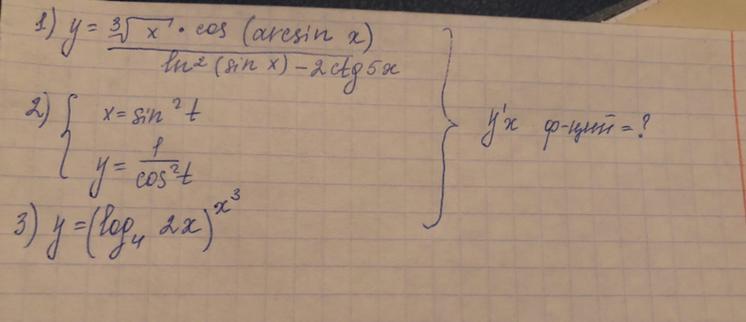 1) y = ∛x · cos (arcsin x) / ln² (sin x) – 2 ctg 5x
2) { x = sin² t
y = 1 / cos² t
3) y = (log₄ 2x)^x³
} y'x ф-ций = ?